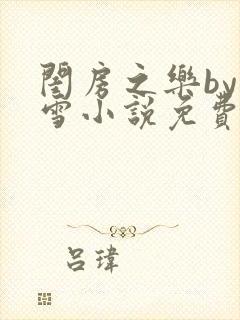 閨房之樂by
雪小說免費
呂瑋